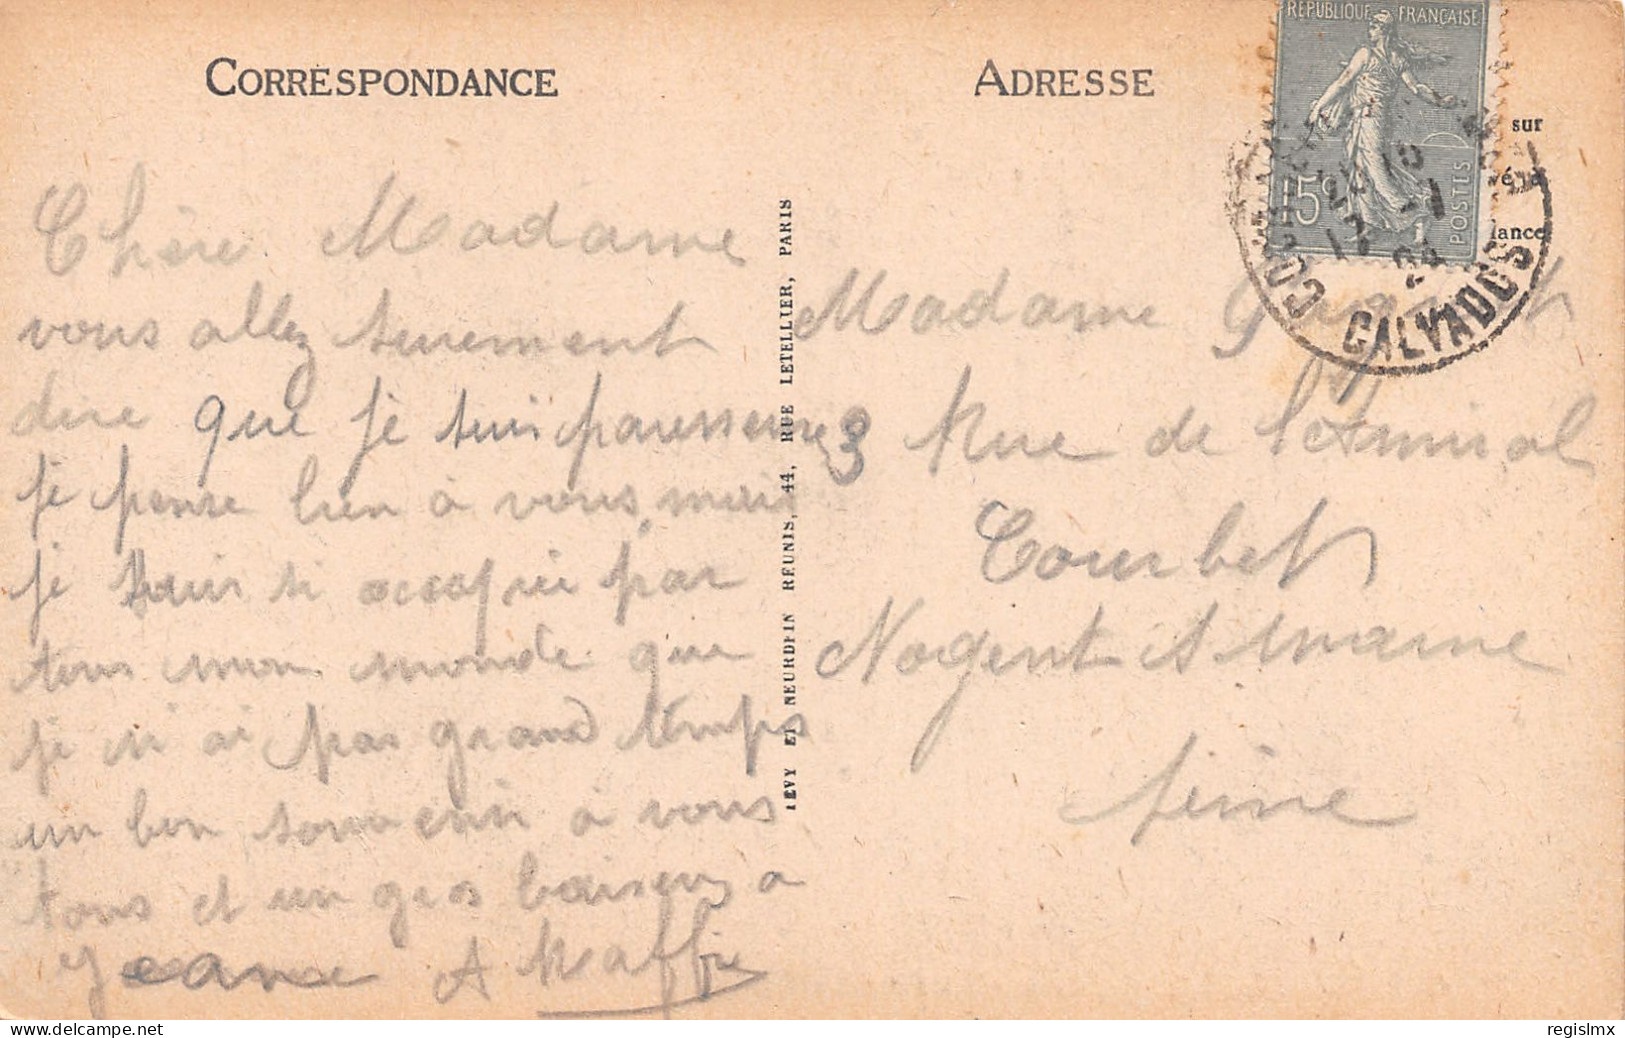 CORRESPONDANCE
Chère Madame
vous allez surement
dire que je suis paresseuse
je pense bien à vous, mais
je suis si occupée par
tous mon monde que
je n'ai pas grand temps
un bon souvenir à vous
tous et un gros baisers a
Jeanne A Maffre
LEVY ET NEURDEIN REUNIS, 44, RUE LETELLIER, PARIS
ADRESSE
sur
lance
REPUBLIQUE FRANÇAISE
15c
POSTES
CALVADOS
Madame
3 Rue de l'Amiral
Courbet
Nogent s marne
Seine
delcampe.net
regislmx